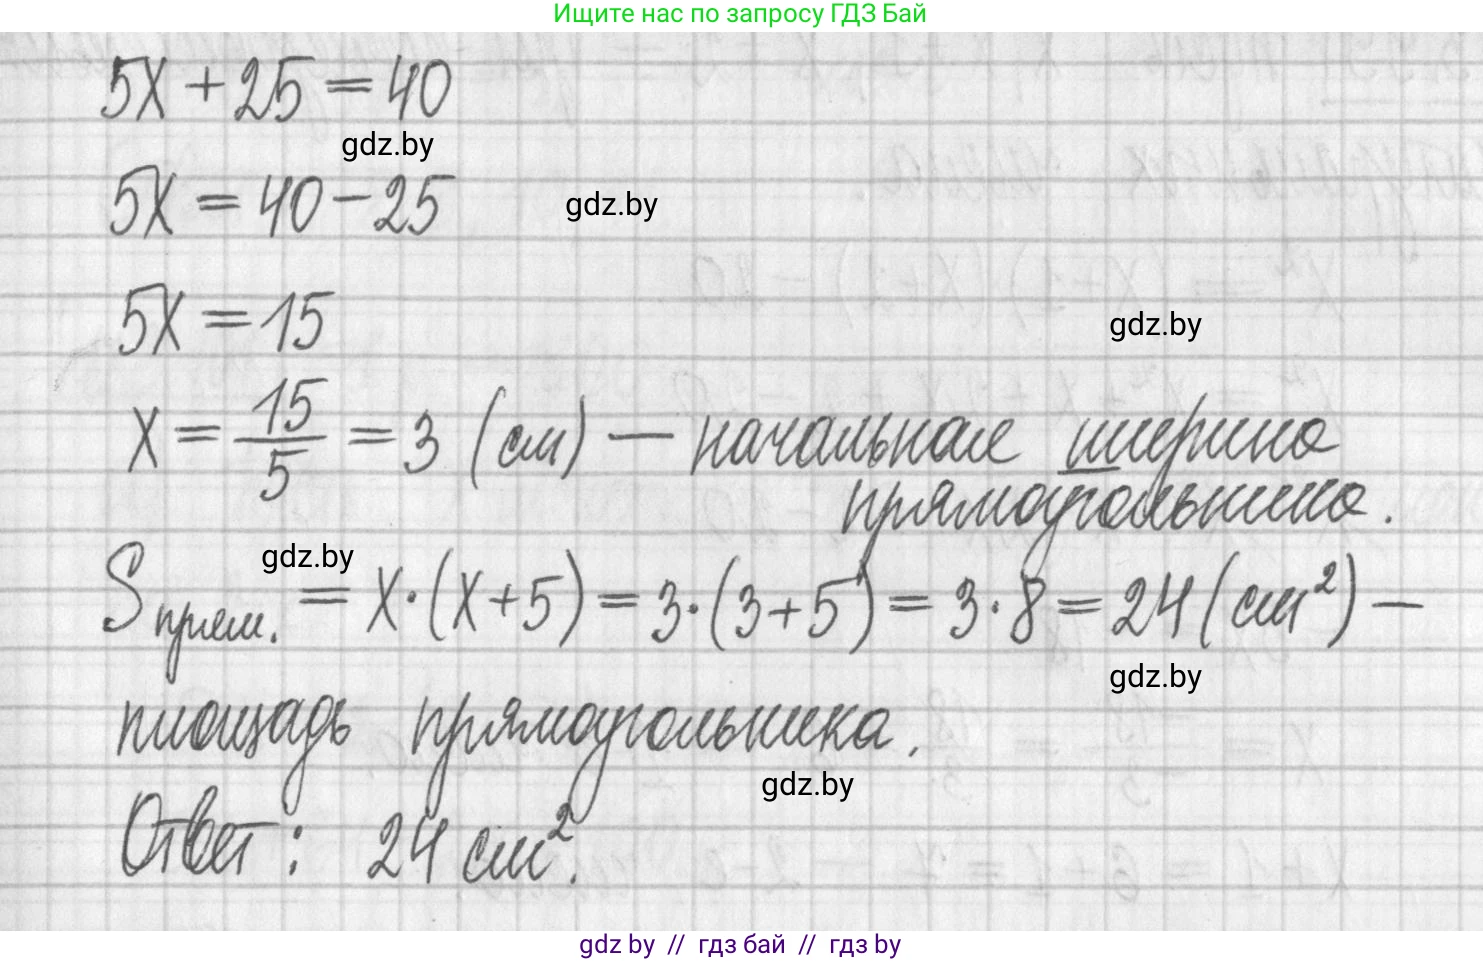 Ищите нас по запросу ГДЗ Бай
5x + 25 = 40
gdz.by
5x = 40 - 25
gdz.by
5x = 15
gdz.by
x = 15/5 = 3 (см) — начальная ширина
прямоугольника.
gdz.by
S прям. = x · (x + 5) = 3 · (3 + 5) = 3 · 8 = 24 (см²) —
gdz.by
площадь прямоугольника.
gdz.by
Ответ: 24 см².
gdz by // гдз бай // гдз by